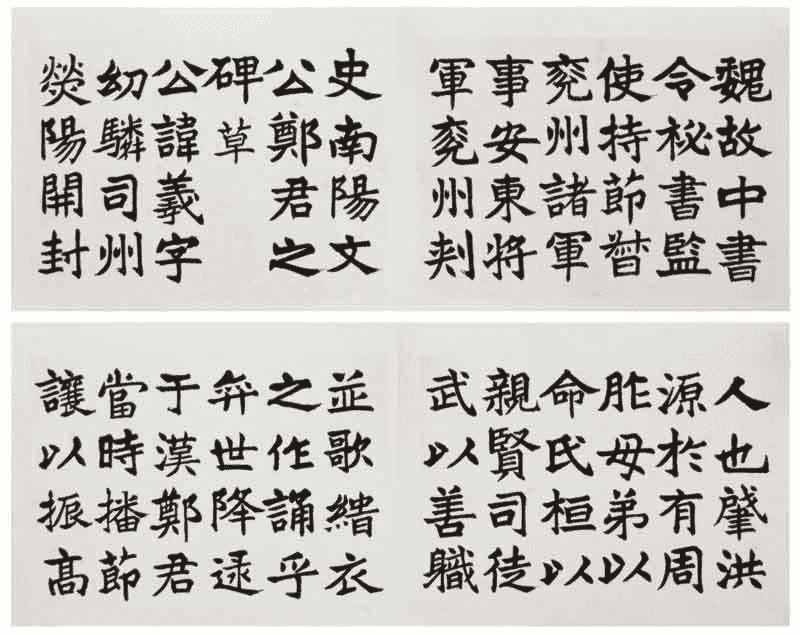 魏故中書
令秘書監
使持節督
兖州諸軍
事安東將
軍兖州刾
史南陽文
公鄭君之
碑草
公諱羲字
幼驎司州
熒陽開封
人也肇洪
源於有周
胙母弟以
命氏桓以
親賢司徒
武以善職
並歌緇衣
之作誦乎
弈世降逮
于漢鄭君
當時播節
讓以振髙